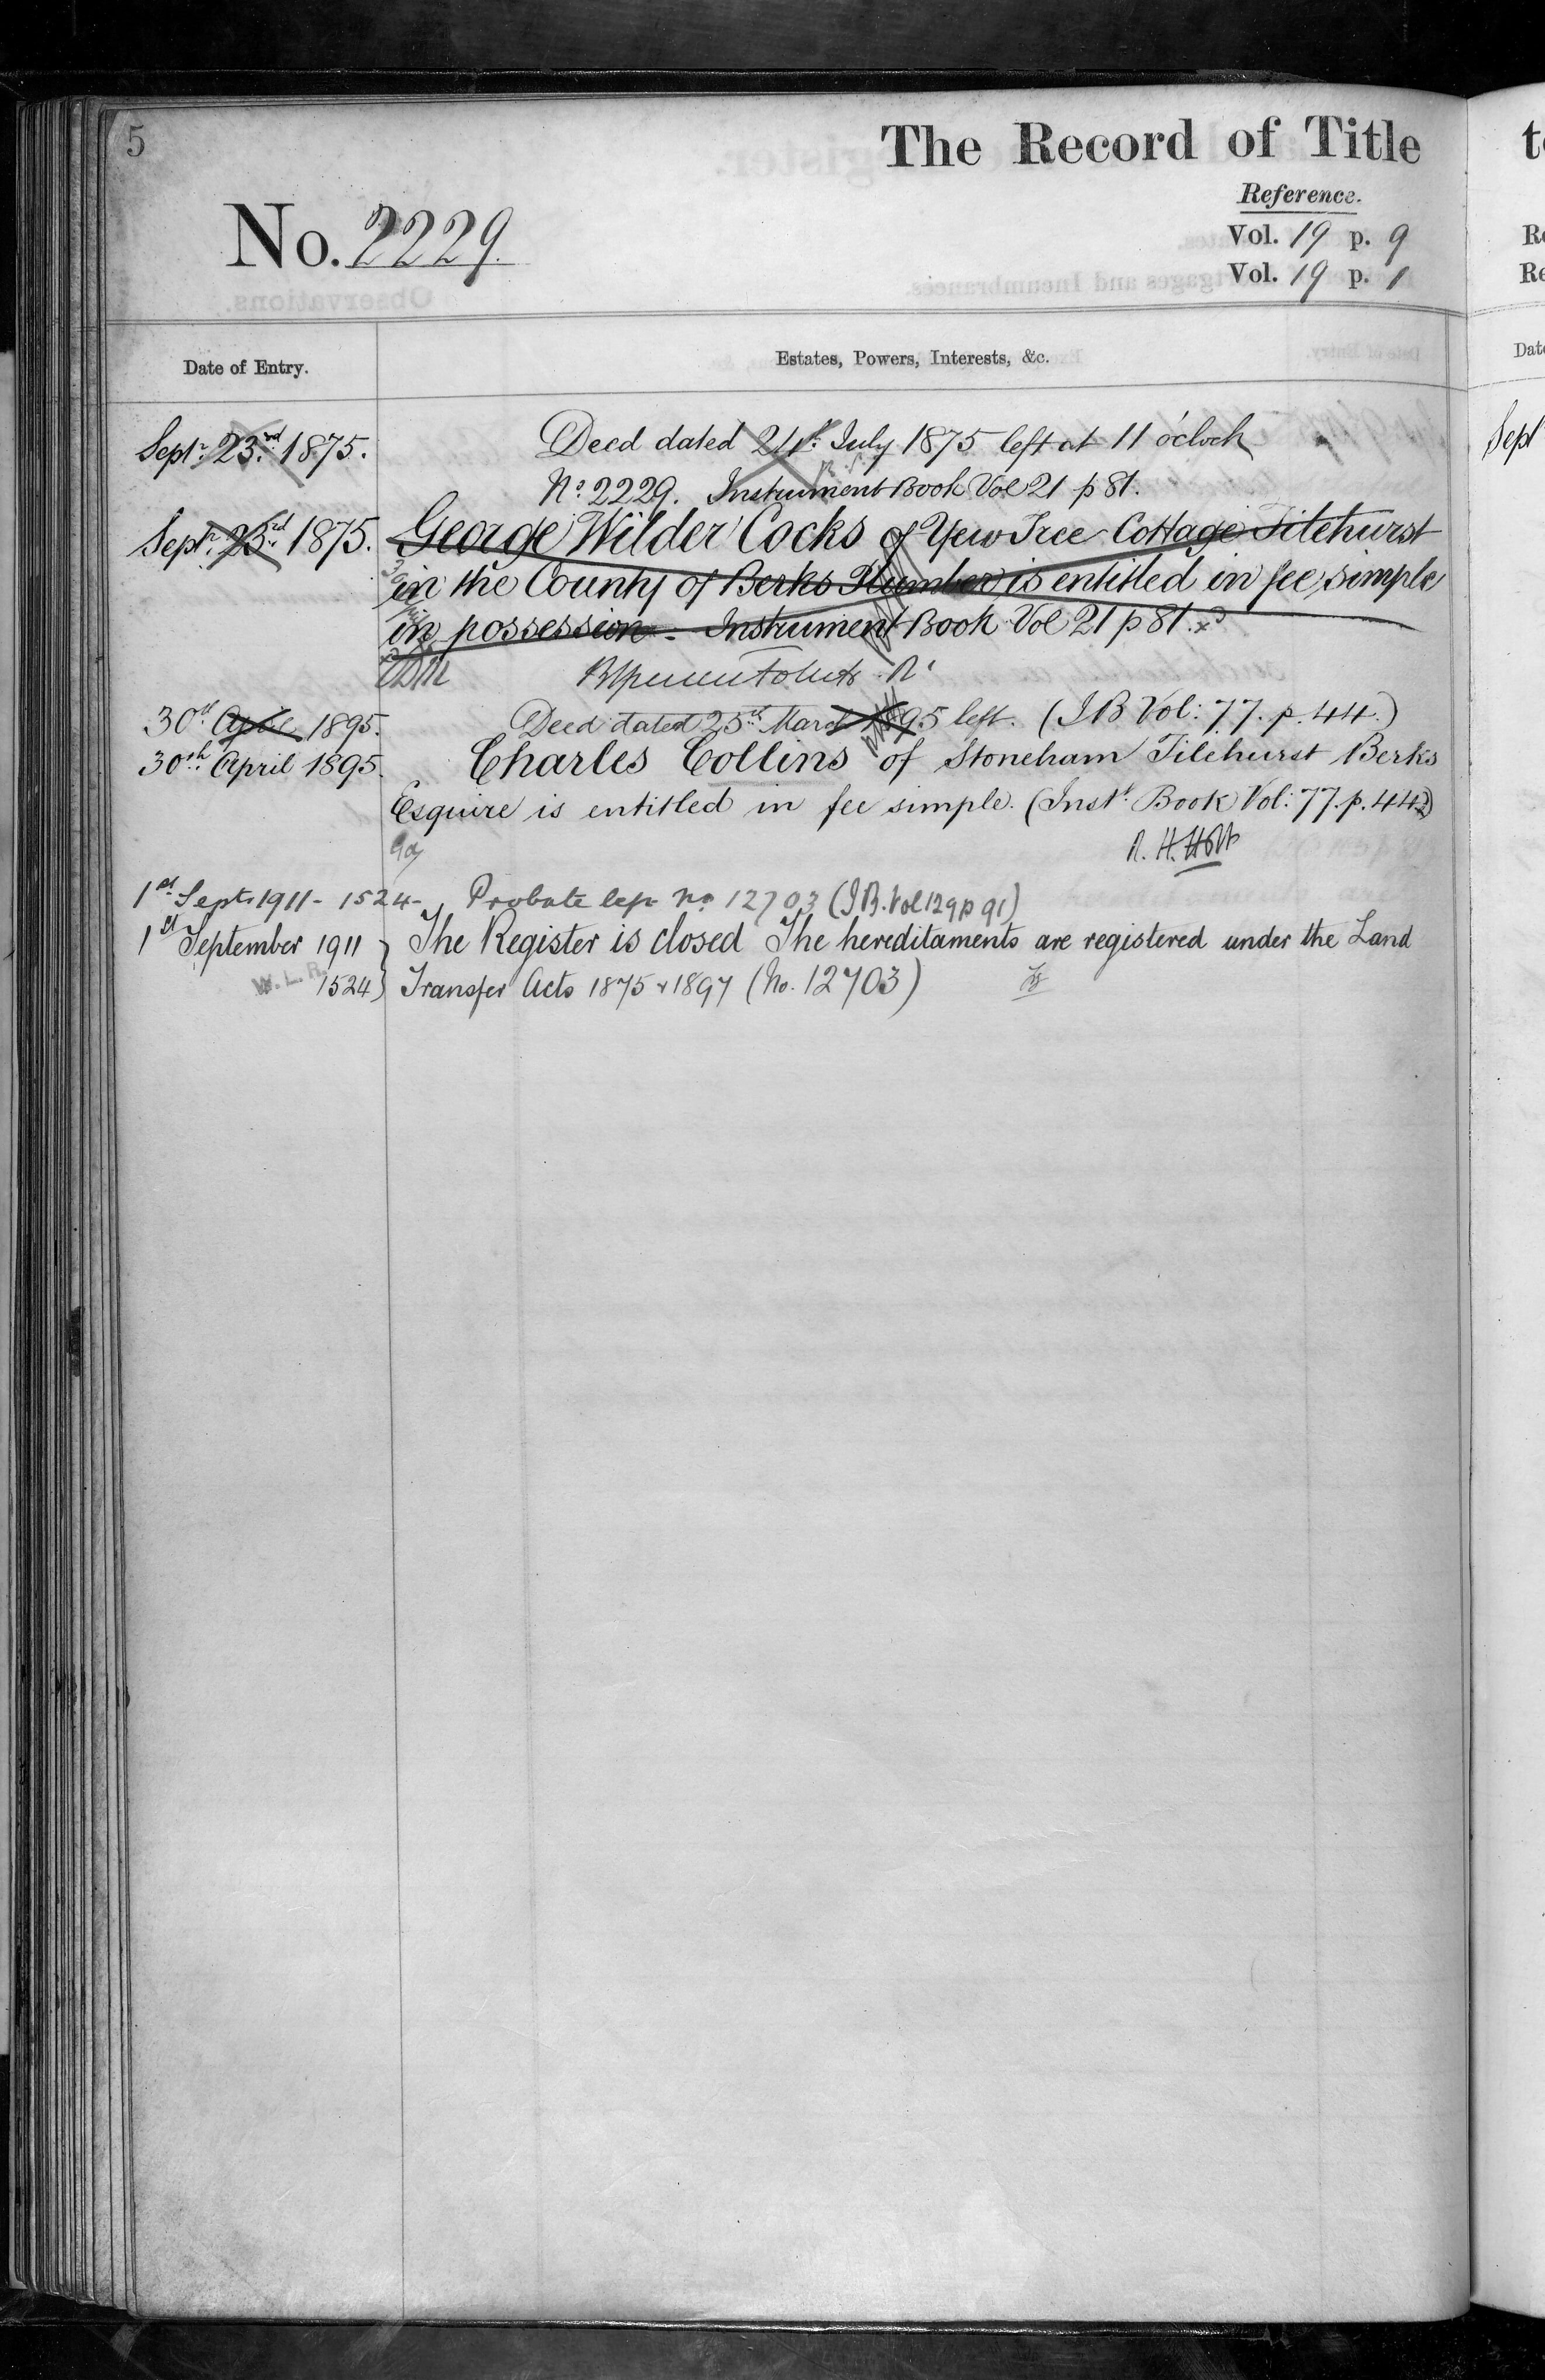 5
The Record of Title
Reference.
No. 2229.
Vol. 19 p. 9
Vol. 19 p. 1
Date of Entry.
Estates, Powers, Interests, &c.
Septr. 23rd 1875.
Deed dated 24th July 1875 left at 11 o'clock
No. 2229. Instrument Book Vol 21 p 81.
Septr. 23rd 1875.
George Wilder Cocks of Yew Tree Cottage Tilehurst
in the County of Berks Plumber is entitled in fee simple
in possession - Instrument Book Vol 21 p 81.
30th April 1895.
Deed dated 25th March 95 left. (I B Vol: 77. p. 44.)
30th April 1895.
Charles Collins of Stoneham Tilehurst Berks
Esquire is entitled in fee simple. (Inst. Book Vol: 77. p. 44)
R. H. Holt
1st Sept 1911 - 1524 - Probate No 12703 (I B. Vol 129 p 91)
1st September 1911 } The Register is closed The hereditaments are registered under the Land
W. L. R. 1524 } Transfer Acts 1875 & 1897 (No. 12703)
t
R
Re
Date
Sept